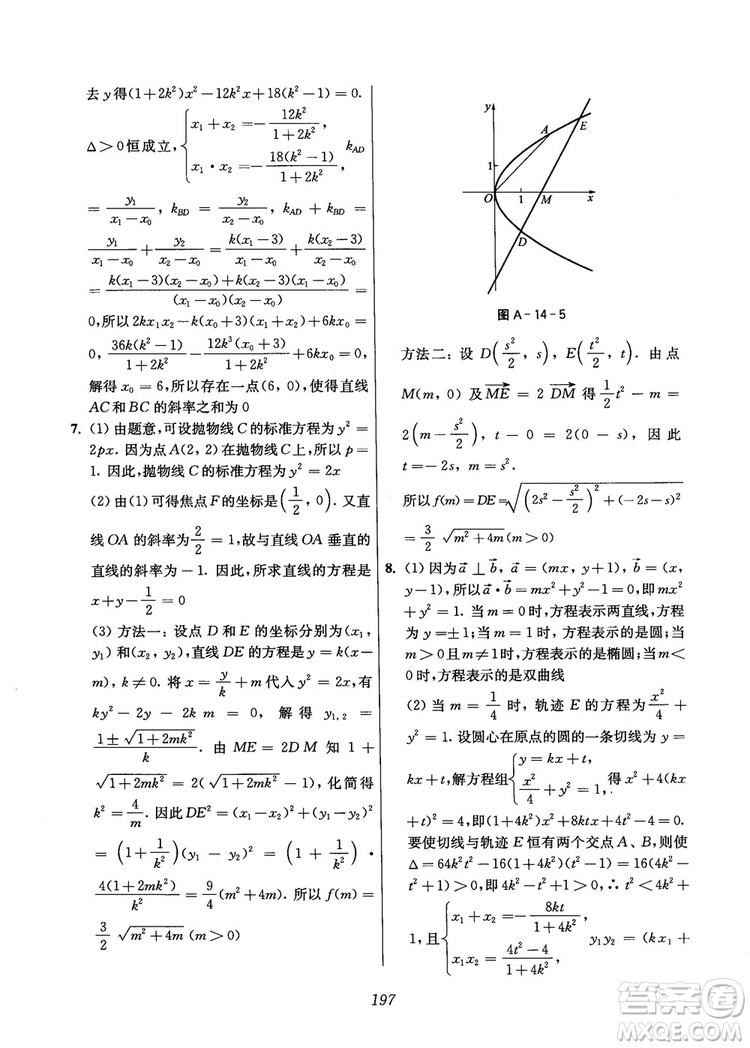 去 y 得(1+2k²)x²−12k²x+18(k²−1)=0.
Δ>0 恒成立, { x₁+x₂=−12k²/(1+2k²), x₁·x₂=−18(k²−1)/(1+2k²), k_AD
=y₁/(x₁−x₀), k_BD=y₂/(x₂−x₀), k_AD+k_BD=
y₁/(x₁−x₀)+y₂/(x₂−x₀)=k(x₁−3)/(x₁−x₀)+k(x₂−3)/(x₂−x₀)
=[k(x₁−3)(x₂−x₀)+k(x₂−3)(x₁−x₀)]/[(x₁−x₀)(x₂−x₀)]=
0,所以 2kx₁x₂−k(x₀+3)(x₁+x₂)+6kx₀=
0, 36k(k²−1)/(1+2k²)−12k³(x₀+3)/(1+2k²)+6kx₀=0,
解得 x₀=6,所以存在一点(6, 0),使得直线
AC 和 BC 的斜率之和为 0
7. (1) 由题意,可设抛物线 C 的标准方程为 y²=
2px. 因为点 A(2, 2)在抛物线 C 上,所以 p=
1. 因此,抛物线 C 的标准方程为 y²=2x
(2) 由(1)可得焦点 F 的坐标是(1/2, 0). 又直
线 OA 的斜率为2/2=1,故与直线 OA 垂直的
直线的斜率为−1. 因此,所求直线的方程是
x+y−1/2=0
(3) 方法一:设点 D 和 E 的坐标分别为(x₁,
y₁)和(x₂, y₂),直线 DE 的方程是 y=k(x−
m), k≠0. 将 x=y/k+m 代入 y²=2x,有
ky²−2y−2km=0, 解得 y₁,₂=
(1±√(1+2mk²))/k. 由 ME=2DM 知 1+
√(1+2mk²)=2(√(1+2mk²)−1),化简得
k²=4/m. 因此 DE²=(x₁−x₂)²+(y₁−y₂)²
=(1+1/k²)(y₁−y₂)²=(1+1/k²)·
4(1+2mk²)/k²=9/4(m²+4m). 所以 f(m)=
3/2 √(m²+4m)(m>0)
y
A
E
1
O
1
M
x
D
图 A-14-5
方法二:设 D(s²/2, s), E(t²/2, t). 由点
M(m, 0)及 ME→=2 DM→ 得 1/2 t²−m=
2(m−s²/2), t−0=2(0−s). 因此
t=−2s, m=s²
所以 f(m)=DE=√((2s²−s²/2)²+(−2s−s)²)
=3/2 √(m²+4m)(m>0)
8. (1) 因为 a→⊥b→, a→=(mx, y+1), b→=(x,
y−1),所以 a→·b→=mx²+y²−1=0,即 mx²
+y²=1. 当 m=0 时,方程表示两直线,方程
为 y=±1;当 m=1 时,方程表示的是圆;当
m>0 且 m≠1 时,方程表示的是椭圆;当 m<
0 时,方程表示的是双曲线
(2) 当 m=1/4 时,轨迹 E 的方程为 x²/4+
y²=1. 设圆心在原点的圆的一条切线为 y=
kx+t,解方程组{ y=kx+t, x²/4+y²=1, 得 x²+4(kx
+t)²=4,即(1+4k²)x²+8ktx+4t²−4=0.
要使切线与轨迹 E 恒有两个交点 A、B,则使
Δ=64k²t²−16(1+4k²)(t²−1)=16(4k²−
t²+1)>0,即 4k²−t²+1>0,∴ t²<4k²+
1,且{ x₁+x₂=−8kt/(1+4k²), x₁x₂=(4t²−4)/(1+4k²), y₁y₂=(kx₁+
197
答案圈
MXQE.COM